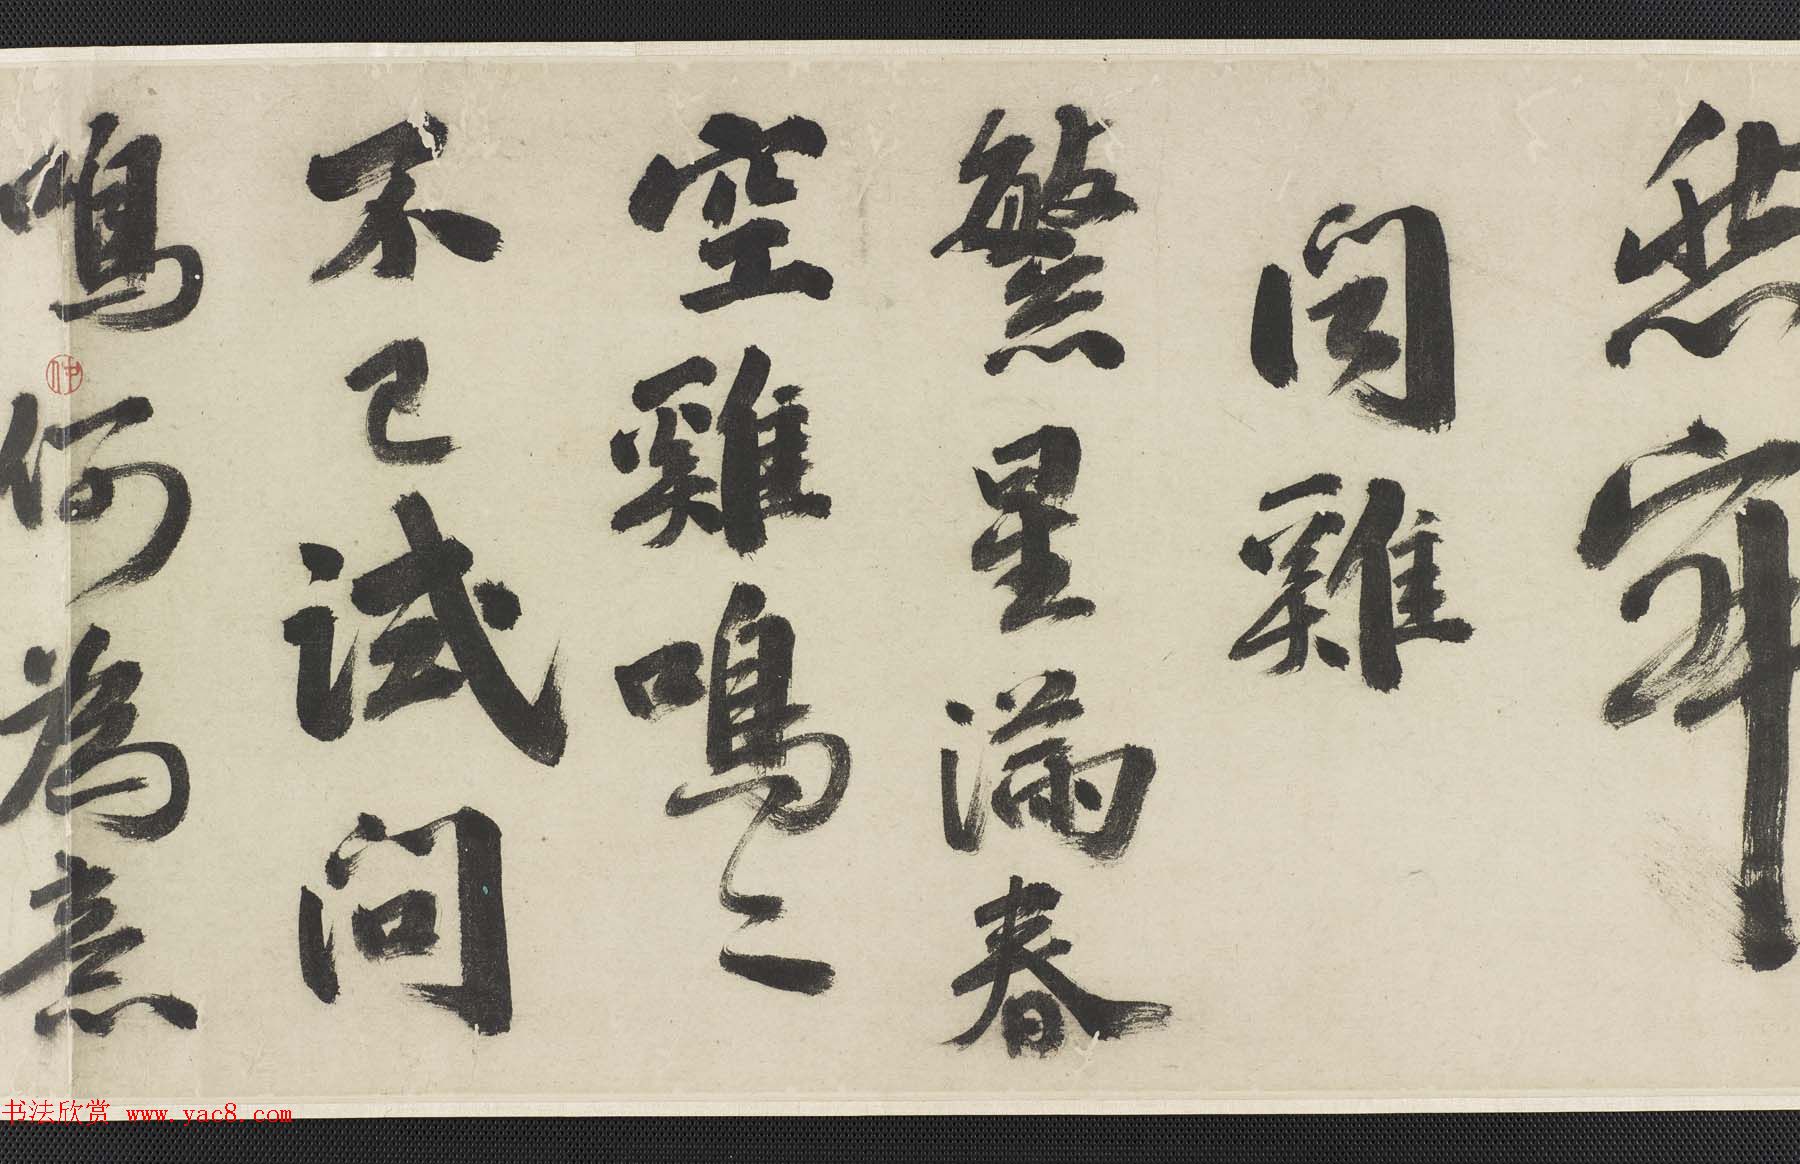 聞雞
繁星滿春
空雞鳴〻
不已試問
鳴何為意
书法欣赏 www.yac8.com